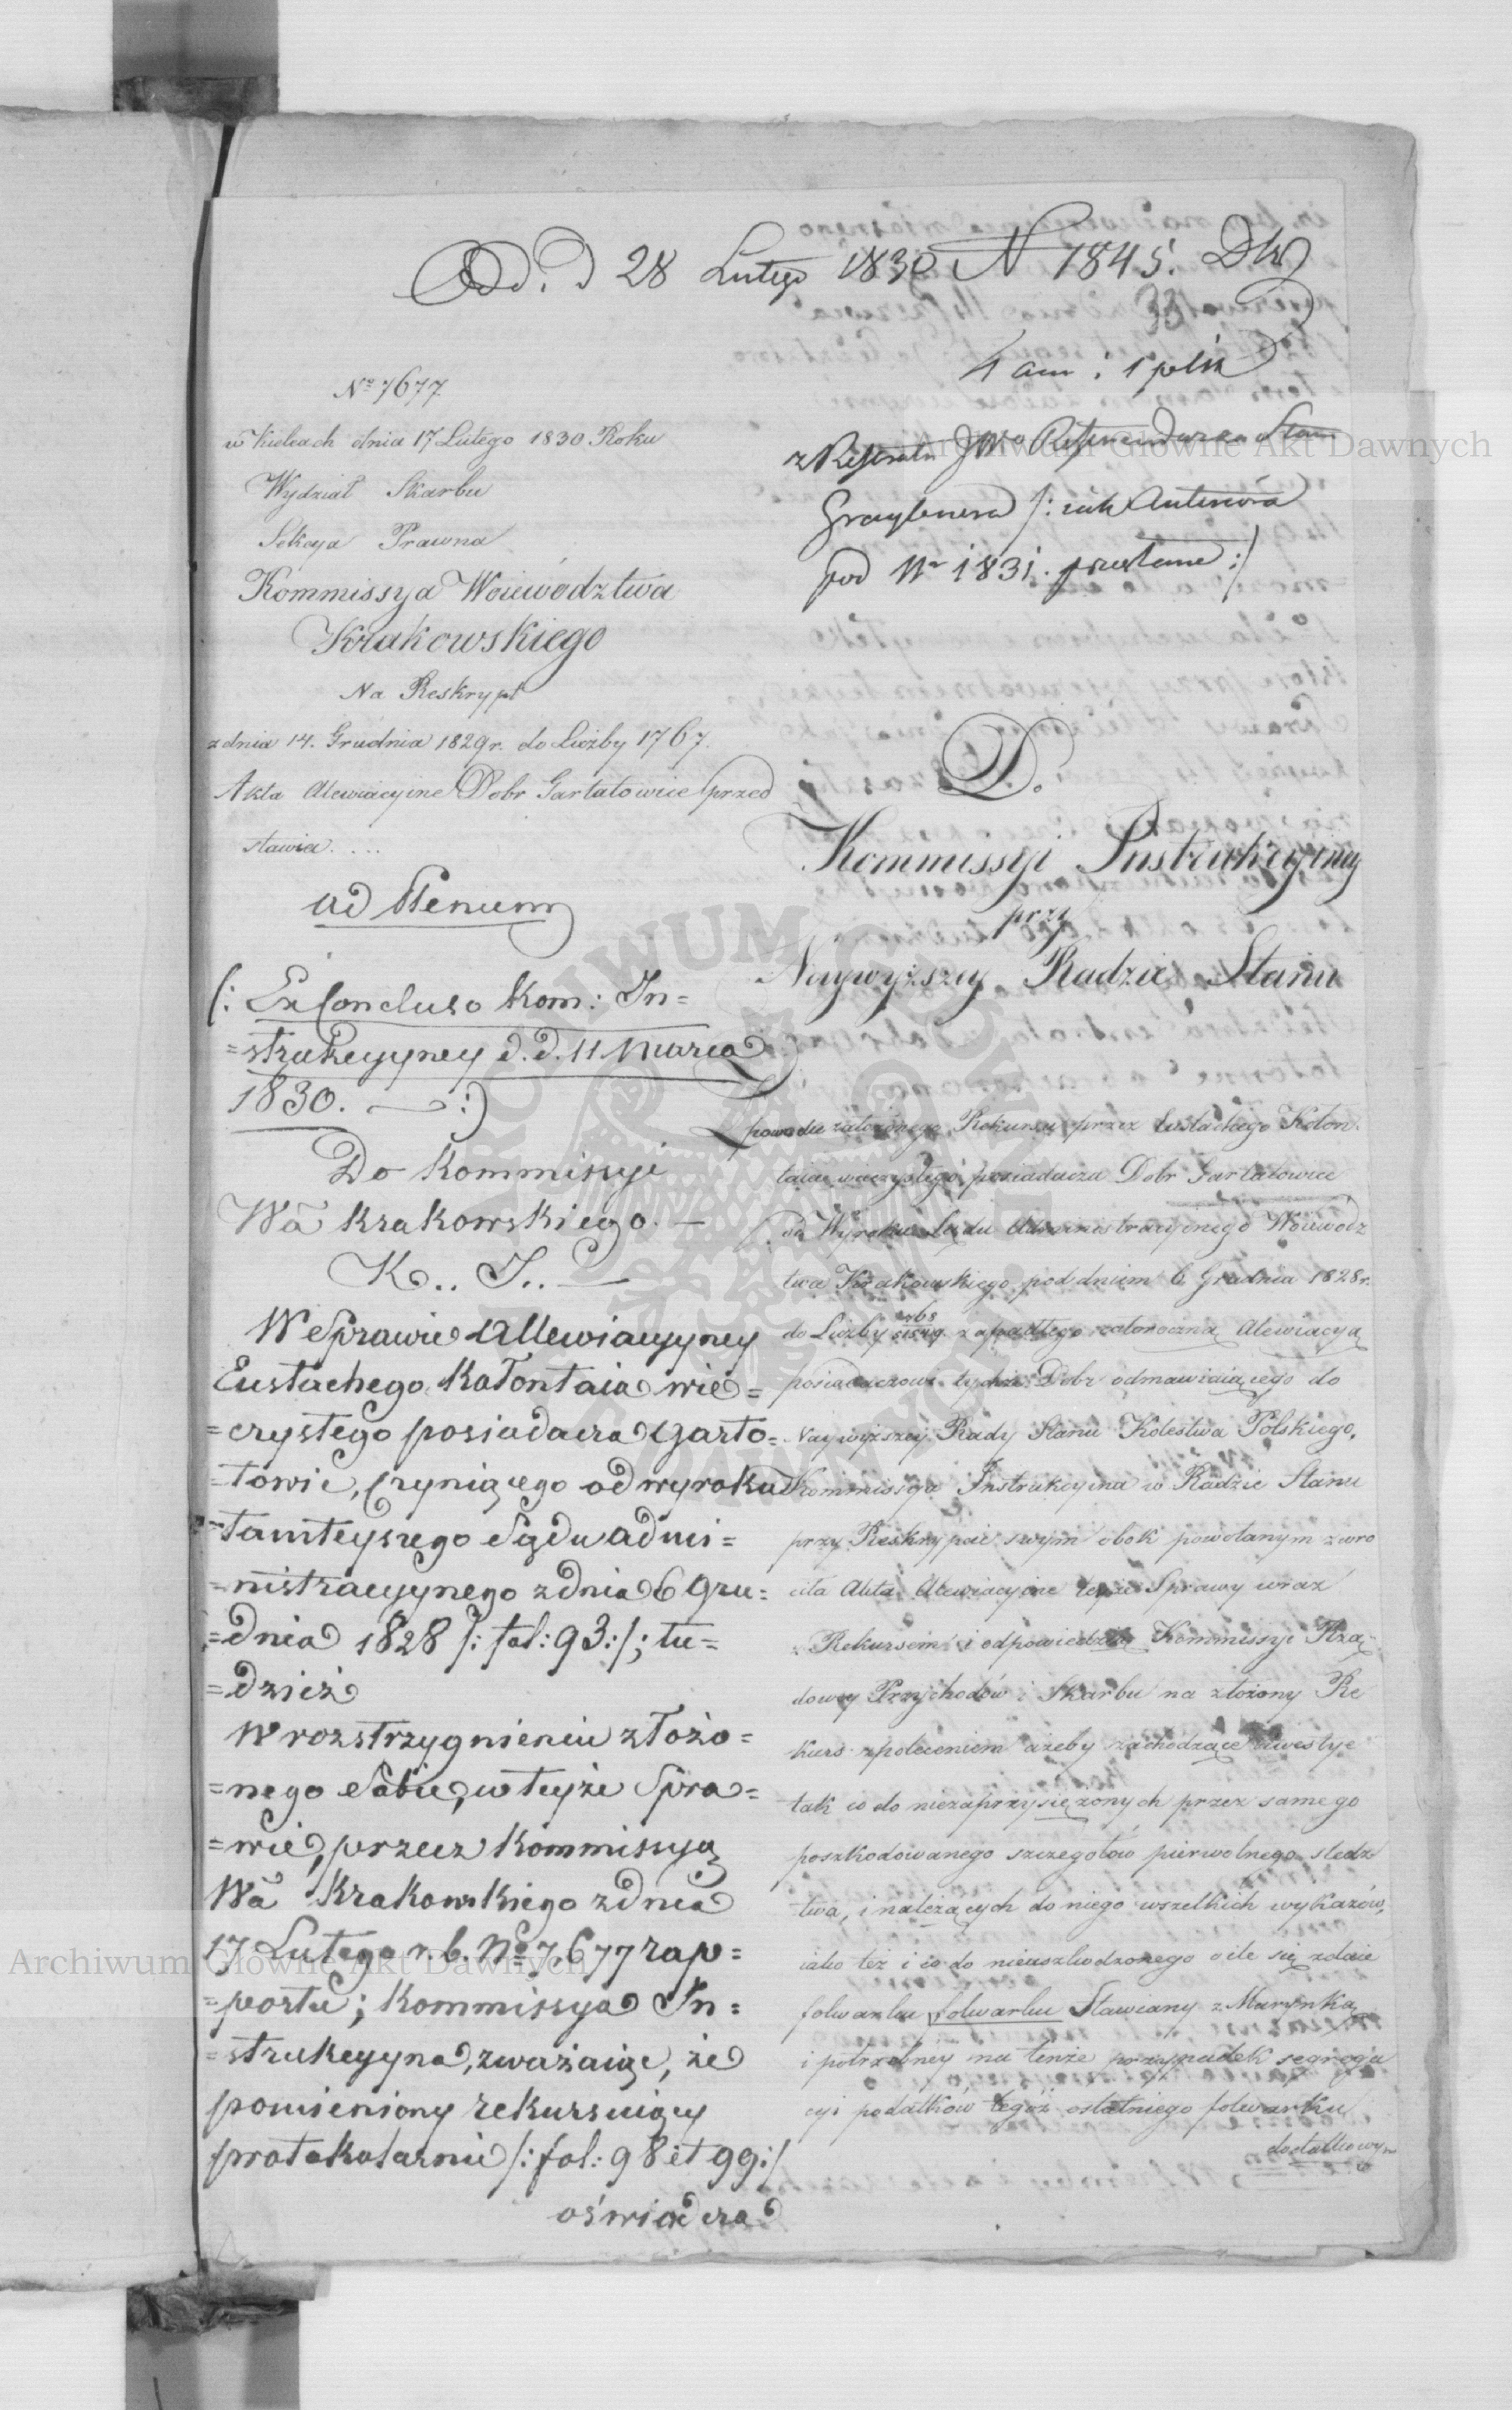 Odd. D 28 Lutego 1830 N 1845. DW
33
4 an: i 1 plik
z Referatu JWo Referendarza Stanu
/: iak Anteriora
pod Nr 1831. przesłane :/
No 7677
w Kielcach dnia 17 Lutego 1830 Roku
Wydział Skarbu
Sekcya Prawna
Kommissya Woiewództwa
Krakowskiego
Na Reskrypt
z dnia 14. Grudnia 1829 r. do Liczby 1767.
Akta Alewiacyine Dobr Gartatowice przed
stawia....
ad Plenum
/: Ex Concluso Kom: In=
=strukcyyney d. d. 11 Marca
1830. — :/
Do Kommissyi
Wa Krakowskiego. —
K.. J.. —
W Sprawie Allewiacyyney
Eustachego Kołontaia wie=
=czystego posiadacza Garto=
=towic, czyniącego od wyroku
=tamteyszego Sądu admi=
=nistracyynego z dnia 6 Gru=
=dnia 1828 /: fol: 93 :/; tu=
=dzież
W rozstrzygnieniu złożo=
=nego Sobie, w teyże Spra=
=wie, przez Kommissyą
Wa Krakowskiego z dnia
17 Lutego r. b. No 7,677 rap=
=portu; Kommissya In=
=strukcyyna, zważaiąc, że
pomieniony rekursuiący
protokolarnie /: fol: 98 et 99 :/
oświadcza
D.
Kommissyi Instrukcyiney
przy
Naywyższey Radzie Stanu
Z powodu założonego Rekursu przez Eustachego Kołon.
taia wieczystego posiadacza Dobr Gartatowice
od Wyroku Sądu Administracyinego Woiewódz
twa Krakowskiego pod dniem 6 Grudnia 1828 r.
do Liczby zapadłego całoroczną Alewiacyą
posiadaczowi tychże Dobr odmawiaiącego do
Naywyższey Rady Stanu Kolestwa Polskiego,
Kommissya Instrukcyina w Radzie Stanu
przy Reskrypcie swym obok powołanym zwro
ciła Akta Alewiacyine teyże Sprawy wraz
z Rekursem i odpowiedzią Kommissyi Rzą-
dowey Przychodów i Skarbu na złożony Re
kurs z poleceniem ażeby zachodzące kwestye
tak co do niezaprzysiężonych przez samego
poszkodowanego szczegołów pierwotnego śledz
twa, i należących do niego wszelkich wykazów,
iako też i co do nieuszkodzonego o ile się zdaie
folwarku folwarku Sławiany z Marynką
i potrzebney na tenże przypadek segrega
cyi podatków tegoż ostatniego folwarku
dodatkowym
Archiwum Główne Akt Dawnych
Archiwum Główne Akt Dawnych
ARCHIWUM GŁÓWNE AKT DAWNYCH